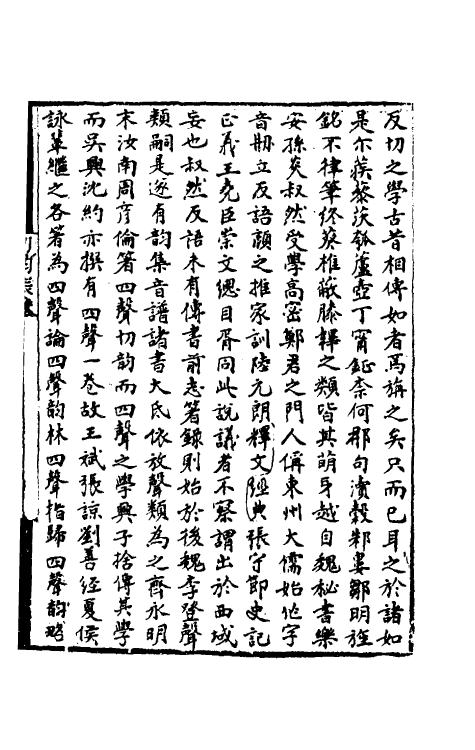 反切之學古昔相傳如者焉旃之矣只而已耳之於諸如
是尔蒺藜茨瓠蘆壺丁甯鉦柰何那句瀆穀邾婁鄒明旌
銘不律筆終葵椎蔽膝韠之類皆其萌牙越自魏秘書樂
安孫炎叔然受學高密鄭君之門人偁東州大儒始作字
音刱立反語顔之推家訓陸元朗釋文經典張守節史記
正義王堯臣崇文總目胥同此說議者不察謂出於西域
妄也叔然反語未有傳書前志著錄則始於後魏李登聲
類嗣是遂有韵集音譜諸書大氐依放聲類為之齊永明
末汝南周彥倫箸四聲切韵而四聲之學興子捨傳其學
而吳興沈約亦撰有四聲一卷故王斌張諒劉善經夏侯
詠輩繼之各箸為四聲論四聲韵林四聲指歸四聲韵略